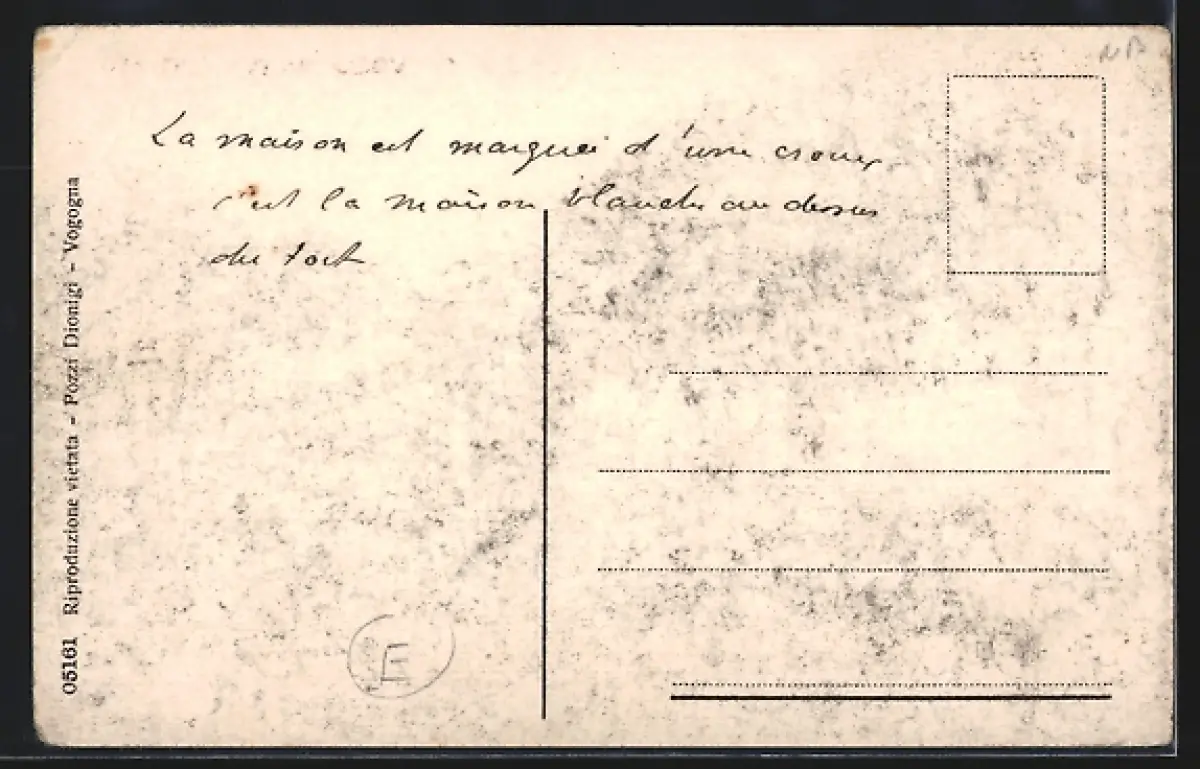 NB
La maison est marquée d'une croix
c'est la maison blanche au dessus
du toit
05161 Riproduzione vietata - Pozzi Dionigi - Vogogna
E